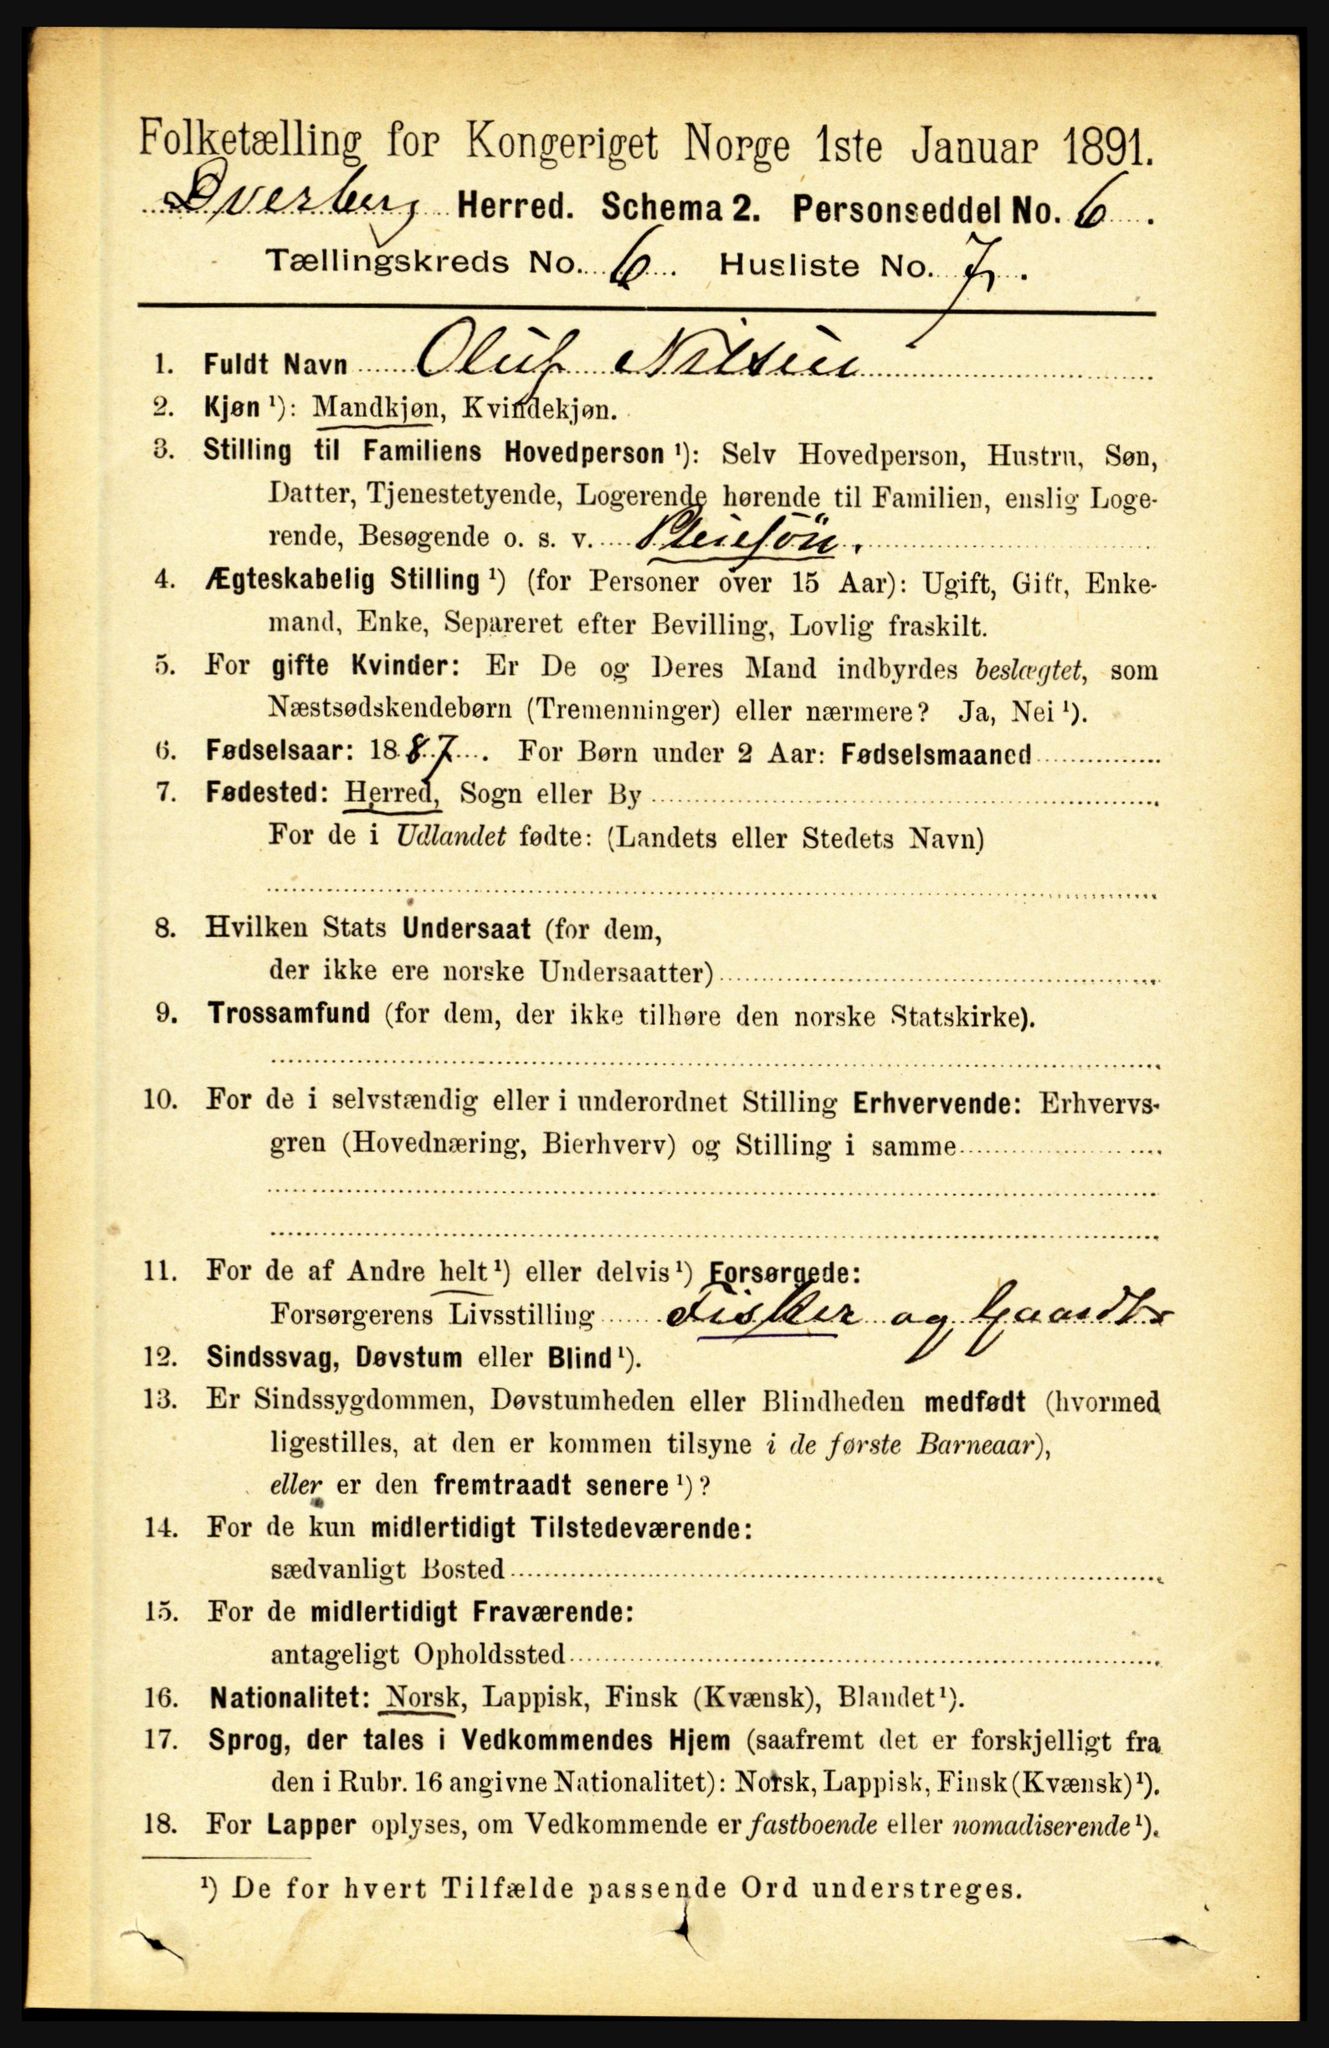 Folketælling for Kongeriget Norge 1ste Januar 1891.
Dverberg Herred. Schema 2. Personseddel No. 6.
Tællingskreds No. 6. Husliste No. 7.
1. Fuldt Navn Oluf Nilsen
2. Kjøn ¹): Mandkjøn, Kvindekjøn.
3. Stilling til Familiens Hovedperson ¹): Selv Hovedperson, Hustru, Søn,
Datter, Tjenestetyende, Logerende hørende til Familien, enslig Loge-
rende, Besøgende o. s. v. Pleiesøn.
4. Ægteskabelig Stilling ¹) (for Personer over 15 Aar): Ugift, Gift, Enke-
mand, Enke, Separeret efter Bevilling, Lovlig fraskilt.
5. For gifte Kvinder: Er De og Deres Mand indbyrdes beslægtet, som
Næstsødskendebørn (Tremenninger) eller nærmere? Ja, Nei ¹).
6. Fødselsaar: 1887. For Børn under 2 Aar: Fødselsmaaned
7. Fødested: Herred, Sogn eller By
For de i Udlandet fødte: (Landets eller Stedets Navn)
8. Hvilken Stats Undersaat (for dem,
der ikke ere norske Undersaatter)
9. Trossamfund (for dem, der ikke tilhøre den norske Statskirke).
10. For de i selvstændig eller i underordnet Stilling Erhvervende: Erhvervs-
gren (Hovednæring, Bierhverv) og Stilling i samme
11. For de af Andre helt ¹) eller delvis ¹) Forsørgede:
Forsørgerens Livsstilling Fisker og Gaardbr
12. Sindssvag, Døvstum eller Blind ¹).
13. Er Sindssygdommen, Døvstumheden eller Blindheden medfødt (hvormed
ligestilles, at den er kommen tilsyne i de første Barneaar),
eller er den fremtraadt senere ¹)?
14. For de kun midlertidigt Tilstedeværende:
sædvanligt Bosted
15. For de midlertidigt Fraværende:
antageligt Opholdssted
16. Nationalitet: Norsk, Lappisk, Finsk (Kvænsk), Blandet ¹).
17. Sprog, der tales i Vedkommendes Hjem (saafremt det er forskjelligt fra
den i Rubr. 16 angivne Nationalitet): Norsk, Lappisk, Finsk (Kvænsk) ¹).
18. For Lapper oplyses, om Vedkommende er fastboende eller nomadiserende ¹).
¹) De for hvert Tilfælde passende Ord understreges.